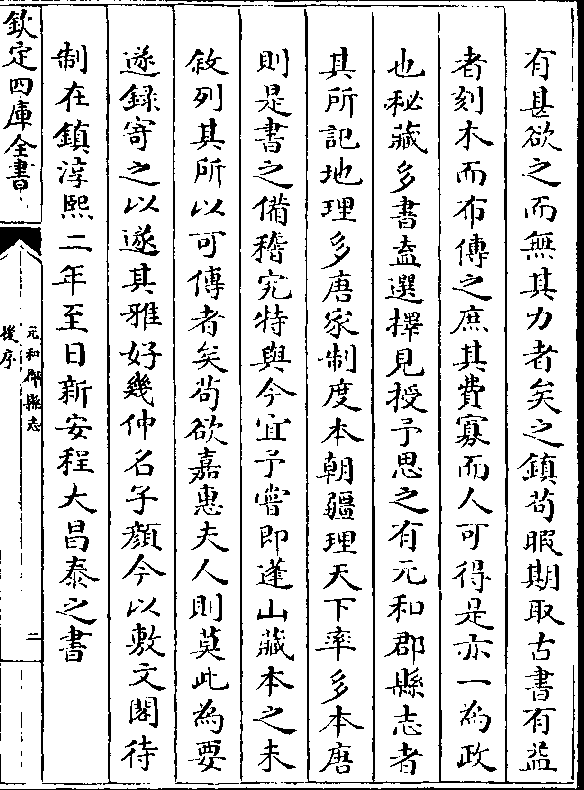 有甚欲之而無其力者矣之鎮苟暇期取古書有益
者刻木而布傳之庶其費寡而人可得是亦一為政
也秘藏多書盍選擇見授予思之有元和郡縣志者
其所記地理多唐家制度本朝疆理天下率多本唐
則是書之備稽究特與今宜予嘗即蓬山藏本之末
敘列其所以可傳者矣苟欲嘉惠夫人則莫此為要
遂錄寄之以遂其雅好幾仲名子顏今以敷文閣待
制在鎮淳熙二年至日新安程大昌泰之書
欽定四庫全書
元和郡縣志
後序
二